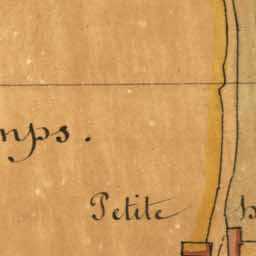 mps.
Petite